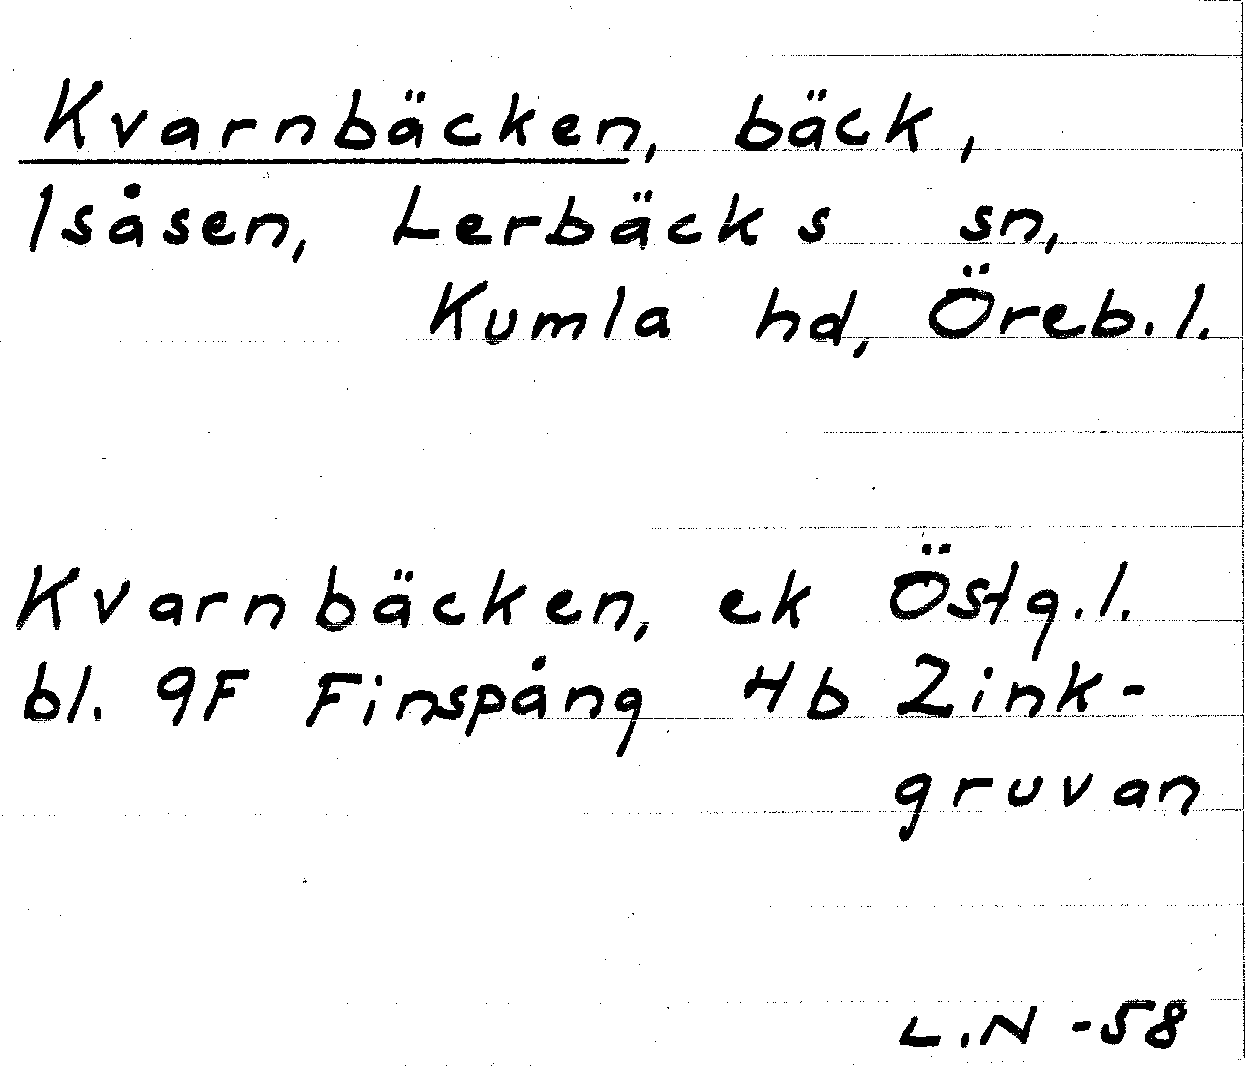 Kvarnbäcken, bäck,
Isåsen, Lerbäcks sn,
Kumla hd, Öreb.l.
Kvarnbäcken, ek Östg.l.
bl. 9F Finspång 4b Zink-
gruvan
L.N -58